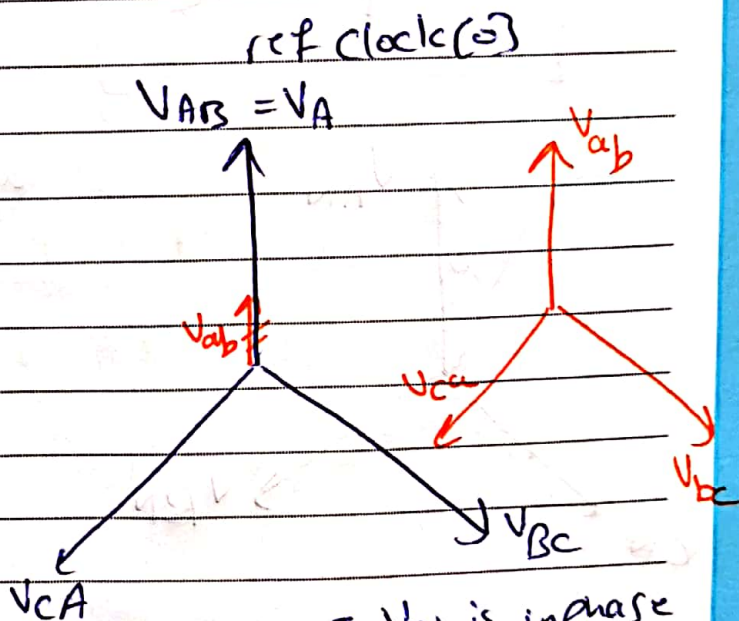 ref clock(0)
VAB = VA
Vab
Vab
Vca
Vbc
VBC
VCA
is inphase